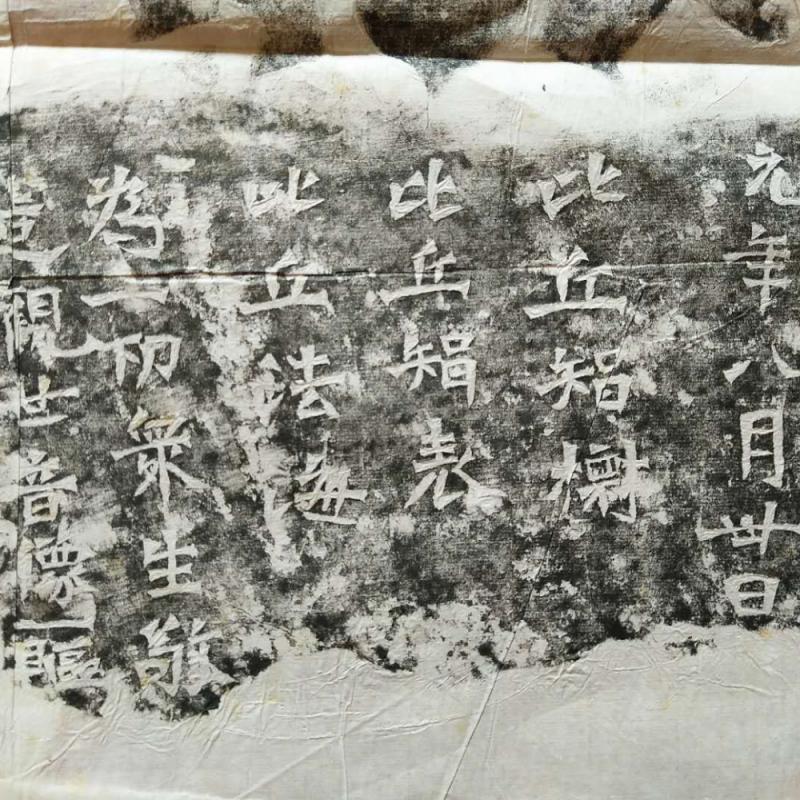 元年八月卅日
比丘智𣗳
比丘智表
比丘法海
為一切衆生敬
造觀世音像一軀